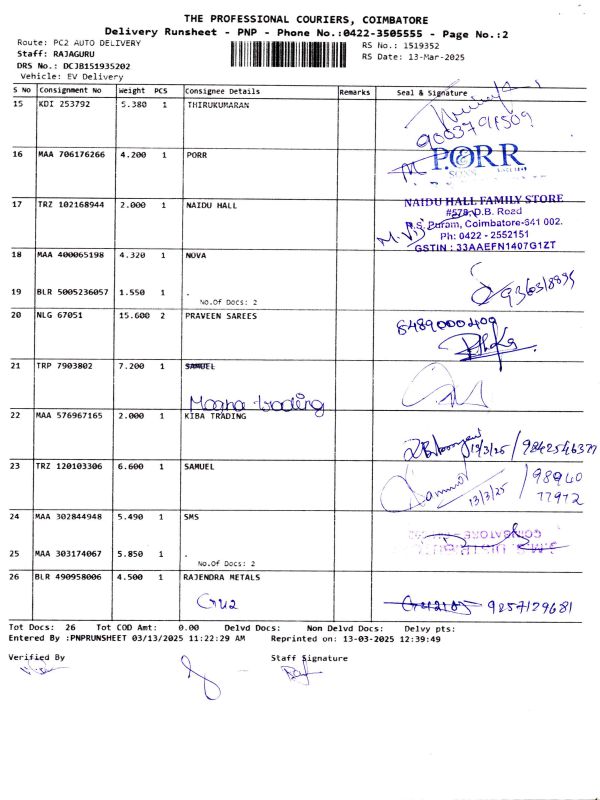 THE PROFESSIONAL COURIERS, COIMBATORE
Delivery Runsheet - PNP - Phone No.:0422-3505555 - Page No.:2
Route: PC2 AUTO DELIVERY
RS No.: 1519352
Staff: RAJAGURU
RS Date: 13-Mar-2025
DRS No.: DCJB151935202
Vehicle: EV Delivery
S No Consignment No Weight PCS Consignee Details Remarks Seal & Signature
15 KDI 253792 5.380 1 THIRUKUMARAN
16 MAA 706176266 4.200 1 PORR
P.ORR
17 TRZ 102168944 2.000 1 NAIDU HALL
NAIDU HALL FAMILY STORE
#578, D.B. Road
R.S. Puram, Coimbatore-641 002.
Ph: 0422 - 2552151
GSTIN : 33AAEFN1407G1ZT
18 MAA 400065198 4.320 1 NOVA
19 BLR 5005236057 1.550 1 .
No.Of Docs: 2
20 NLG 67051 15.600 2 PRAVEEN SAREES
8489000409
21 TRP 7903802 7.200 1 SAMUEL
Magna trading
22 MAA 576967165 2.000 1 KIBA TRADING
13/3/25 / 9842546377
23 TRZ 120103306 6.600 1 SAMUEL
13/3/25 / 98940
77972
24 MAA 302844948 5.490 1 SMS
COIMBATORE
25 MAA 303174067 5.850 1 .
No.Of Docs: 2
26 BLR 490958006 4.500 1 RAJENDRA METALS
9857129681
Tot Docs: 26 Tot COD Amt: 0.00 Delvd Docs: Non Delvd Docs: Delvy pts:
Entered By :PNPRUNSHEET 03/13/2025 11:22:29 AM Reprinted on: 13-03-2025 12:39:49
Verified By
Staff Signature